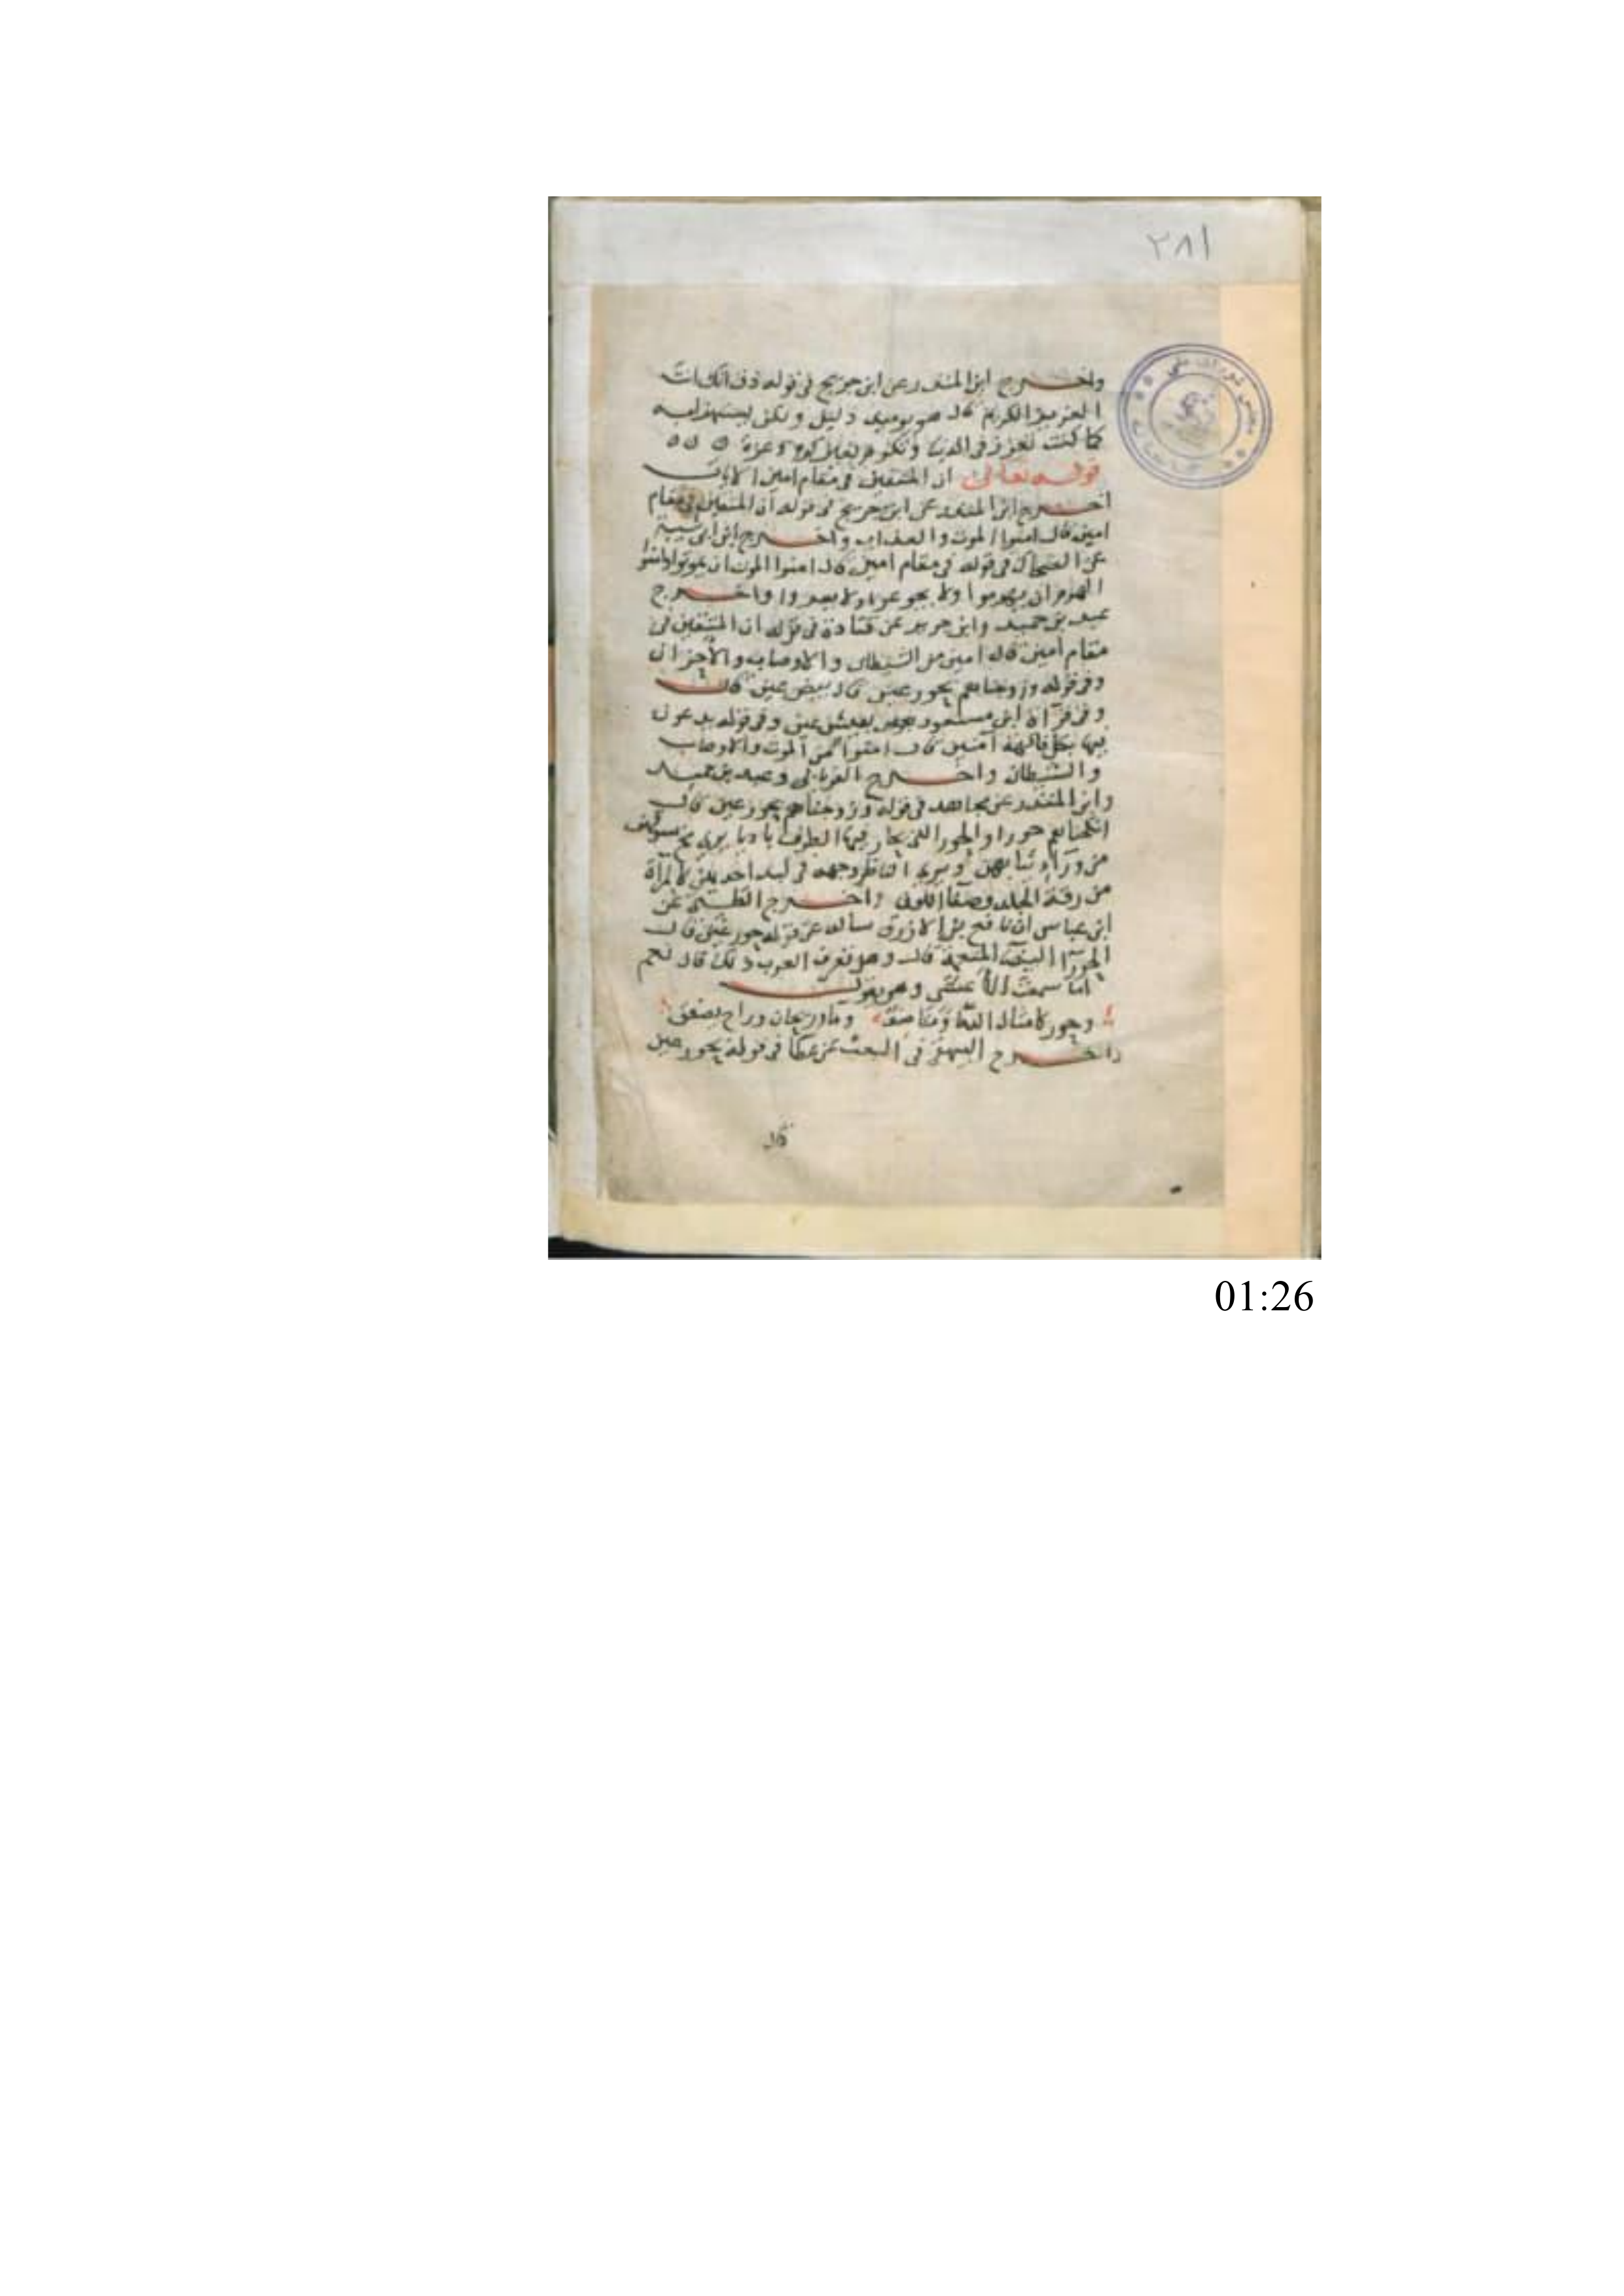 ٢٨١
واخرج ابن المنذر عن ابن جريج في قوله ذق انك انت
العزيز الكريم قال هو يوميد ذليل ولكن يستهزا به
كما كنت تعزز في الدنيا وتكرم بغير كرم وعزة
قوله تعالى ان المتقين في مقام امين الايات
اخرج ابن المنذر عن ابن جريج في قوله ان المتقين في مقام
امين قال امنوا الموت والعذاب واخرج ابن ابي شيبة
عن الضحاك في قوله في مقام امين قال امنوا الموت ان يموتوا وامنوا
الهرم ان يهرموا ولا يجوعوا ولا يعروا واخرج
عبد بن حميد وابن جرير عن قتادة في قوله ان المتقين في
مقام امين قال امين من الشيطان والاوصاب والاحزان
وفي قوله وزوجناهم بحور عين قال بيض عين قال
وفي قرآة ابن مسعود بعيس عين وفي قوله يدعون
فيها بكل فاكهة آمنين قال امنوا من الموت والاوصاب
والشيطان واخرج الفريابي وعبد بن حميد
وابن المنذر عن مجاهد في قوله وزوجناهم بحور عين قال
انكحناهم حورا والحور التي يحار فيها الطرف باديا يرى مخ سوقهن
من ورآء ثيابهن ويرى الناظر وجهه في كبد احديهن كالمرآة
من رقة الجلد وصفا اللون واخرج الطستي عن
ابن عباس ان نافع بن الازرق ساله عن قوله حور عين قال
الحورآ البيضآ المنعمة قال وهل تعرف العرب ذلك قال نعم
اما سمعت الاعشى وهو يقول
وحور كامثال الدما ومناصف وما وريحان وراح يصفق
واخرج البيهقي في البعث عن عطا في قوله بحور عين
قال
01:26